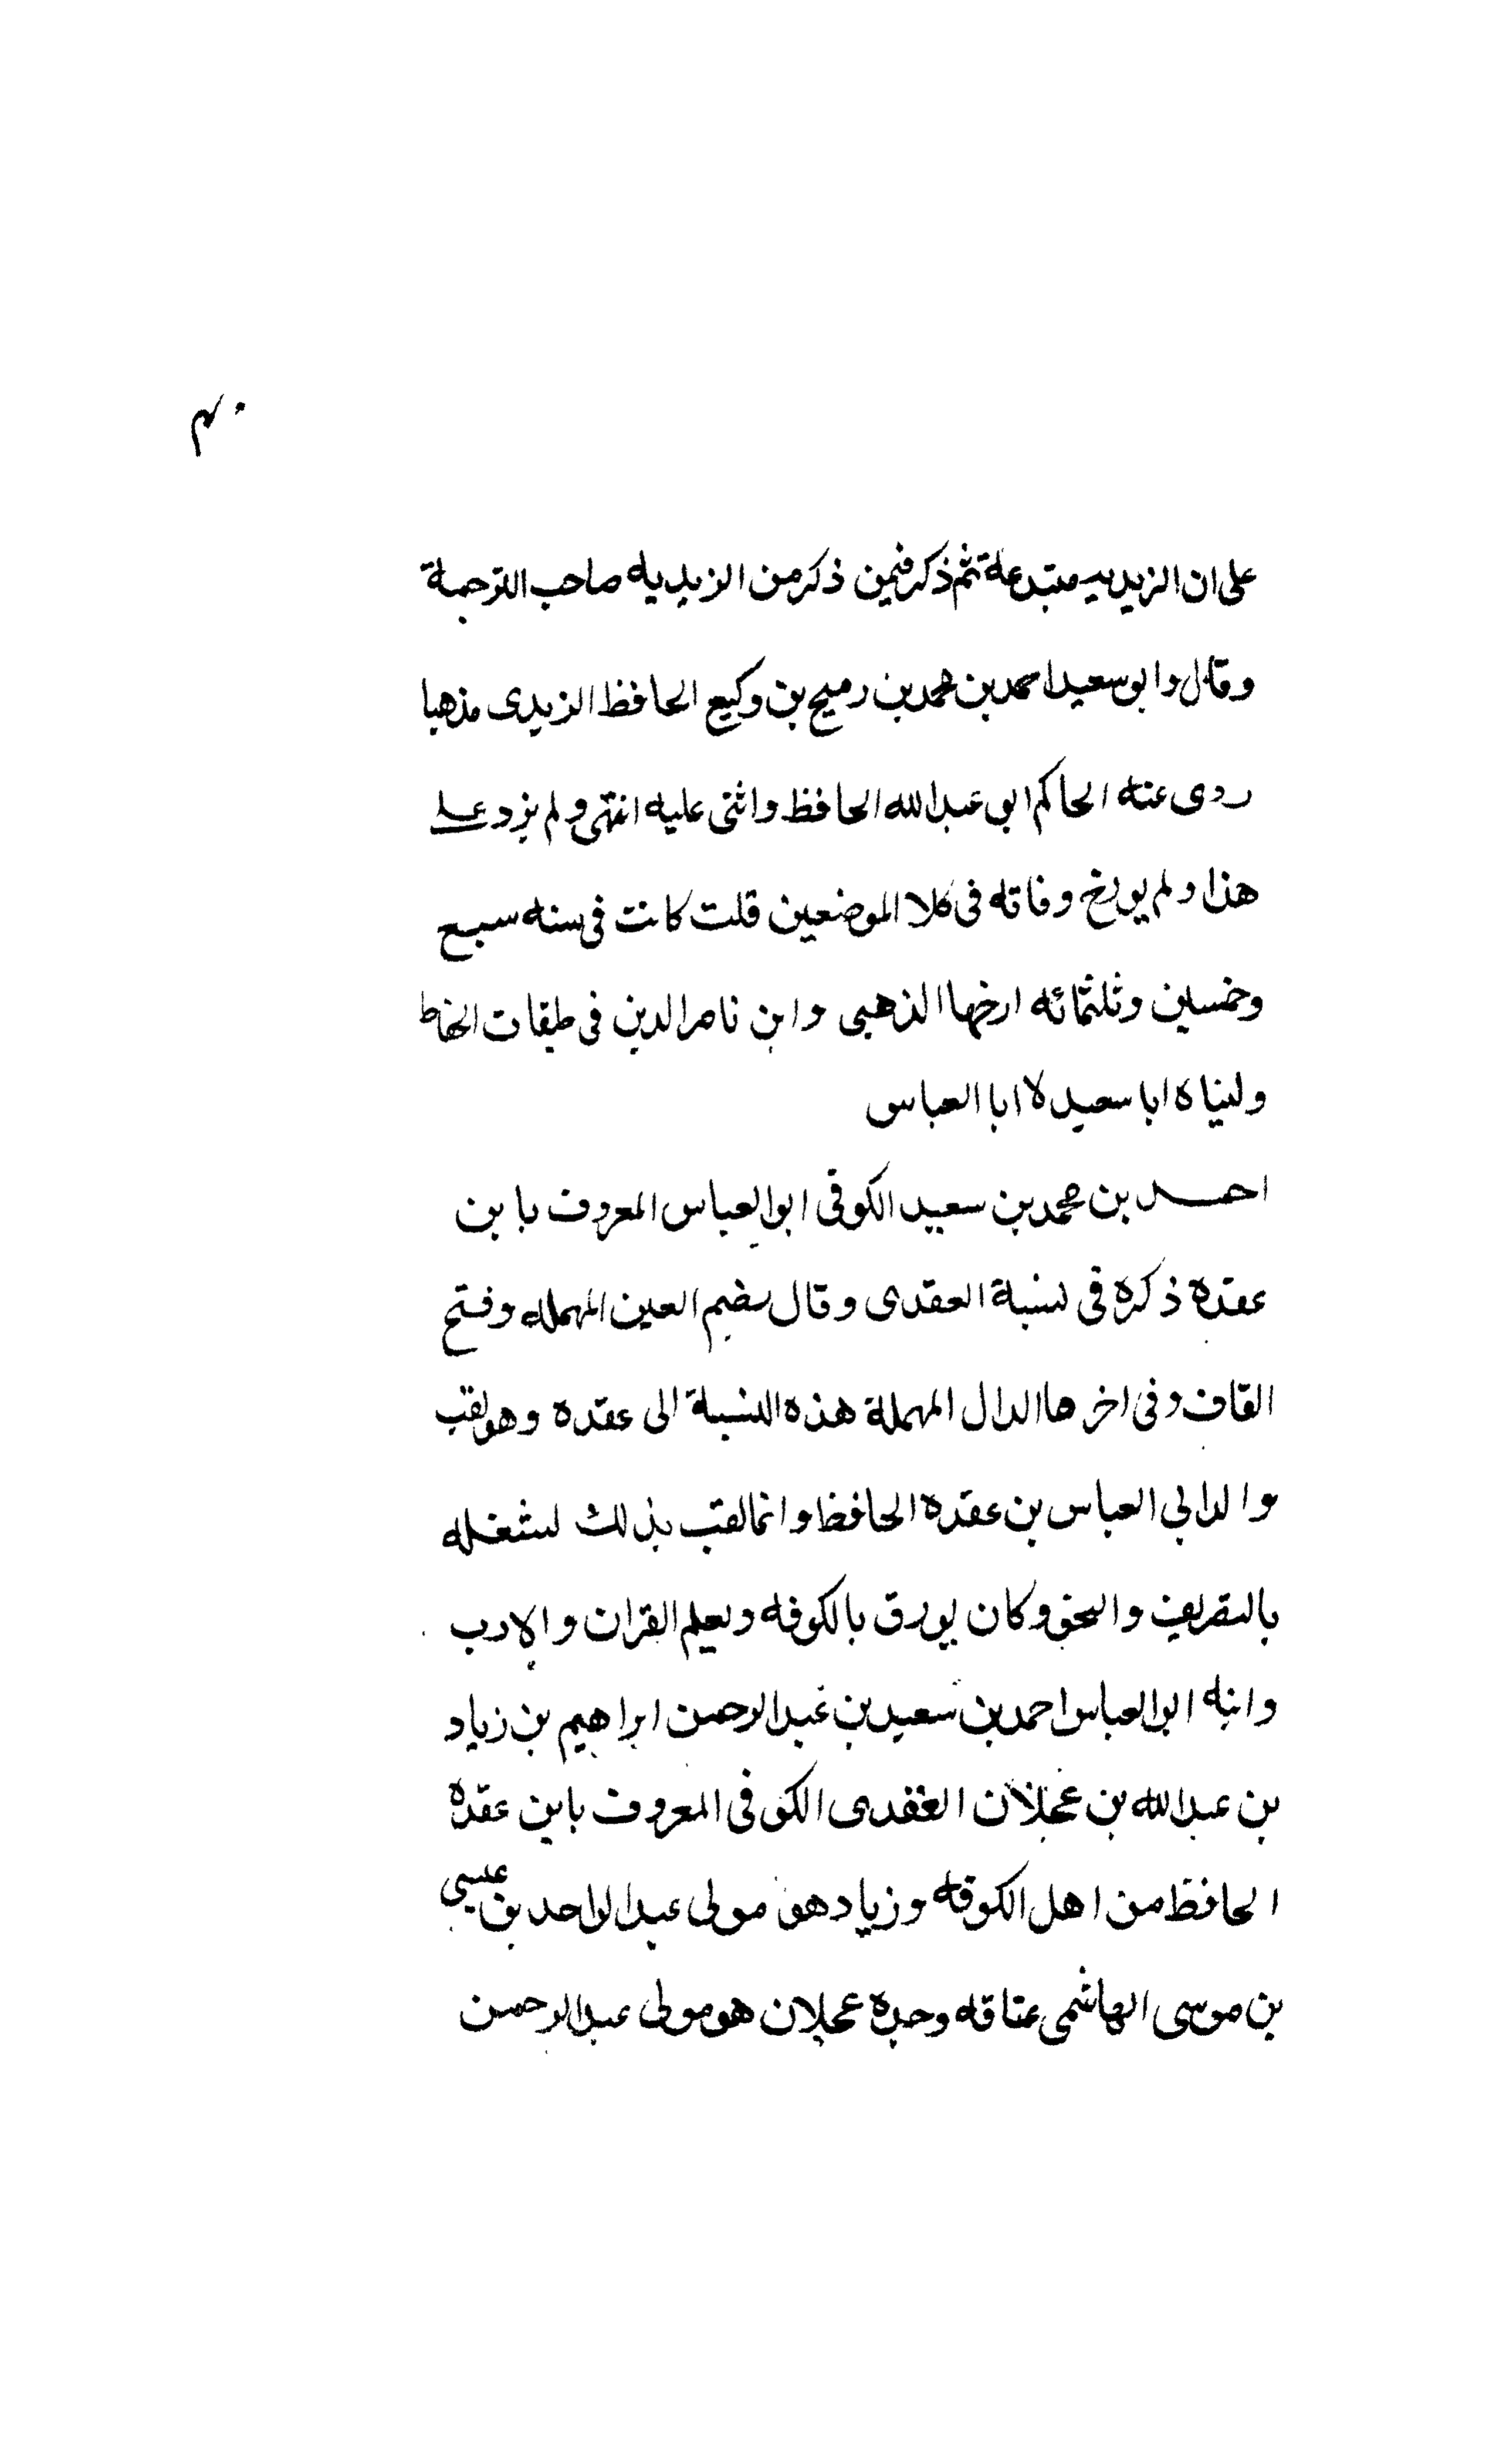 ٤٠
على ان الزيديه مبتدعة ثم ذكر فيمن ذكر من الزيديه صاحب الترجمة
وقال وابو سعيد احمد بن محمد بن رميح بن وكيع الحافظ الزيدى مذهبا
روى عنه الحاكم ابو عبد الله الحافظ واثنى عليه انتهى ولم يزد على
هذا ولم يورخ وفاته فى كلا الموضعين قلت كانت فى سنه سبع
وخمسين وثلثمائه ارخها الذهبى وابن ناصر الدين فى طبقات الحفاظ
وكنياه ابا سعيد لا ابا العباس
احمد بن محمد بن سعيد الكوفى ابو العباس المعروف بابن
عقدة ذكره فى نسبة العقدى وقال بضم العين المهمله وفتح
القاف وفى اخرها الدال المهملة هذه النسبة الى عقده وهو لقب
والد ابي العباس بن عقده الحافظ وانما لقب بذلك لشغله
بالتصريف والنحو وكان يورق بالكوفه ويعلم القران والادب
وابنه ابو العباس احمد بن سعيد بن عبد الرحمن ابراهيم بن زياد
بن عبد الله بن عجلان العقدى الكوفى المعروف بابن عقدة
الحافظ من اهل الكوفه وزياد هو مولى عبد الواحد بن عيسى
بن موسى الهاشمى عتاقه وجده عجلان هو مولى عبد الرحمن